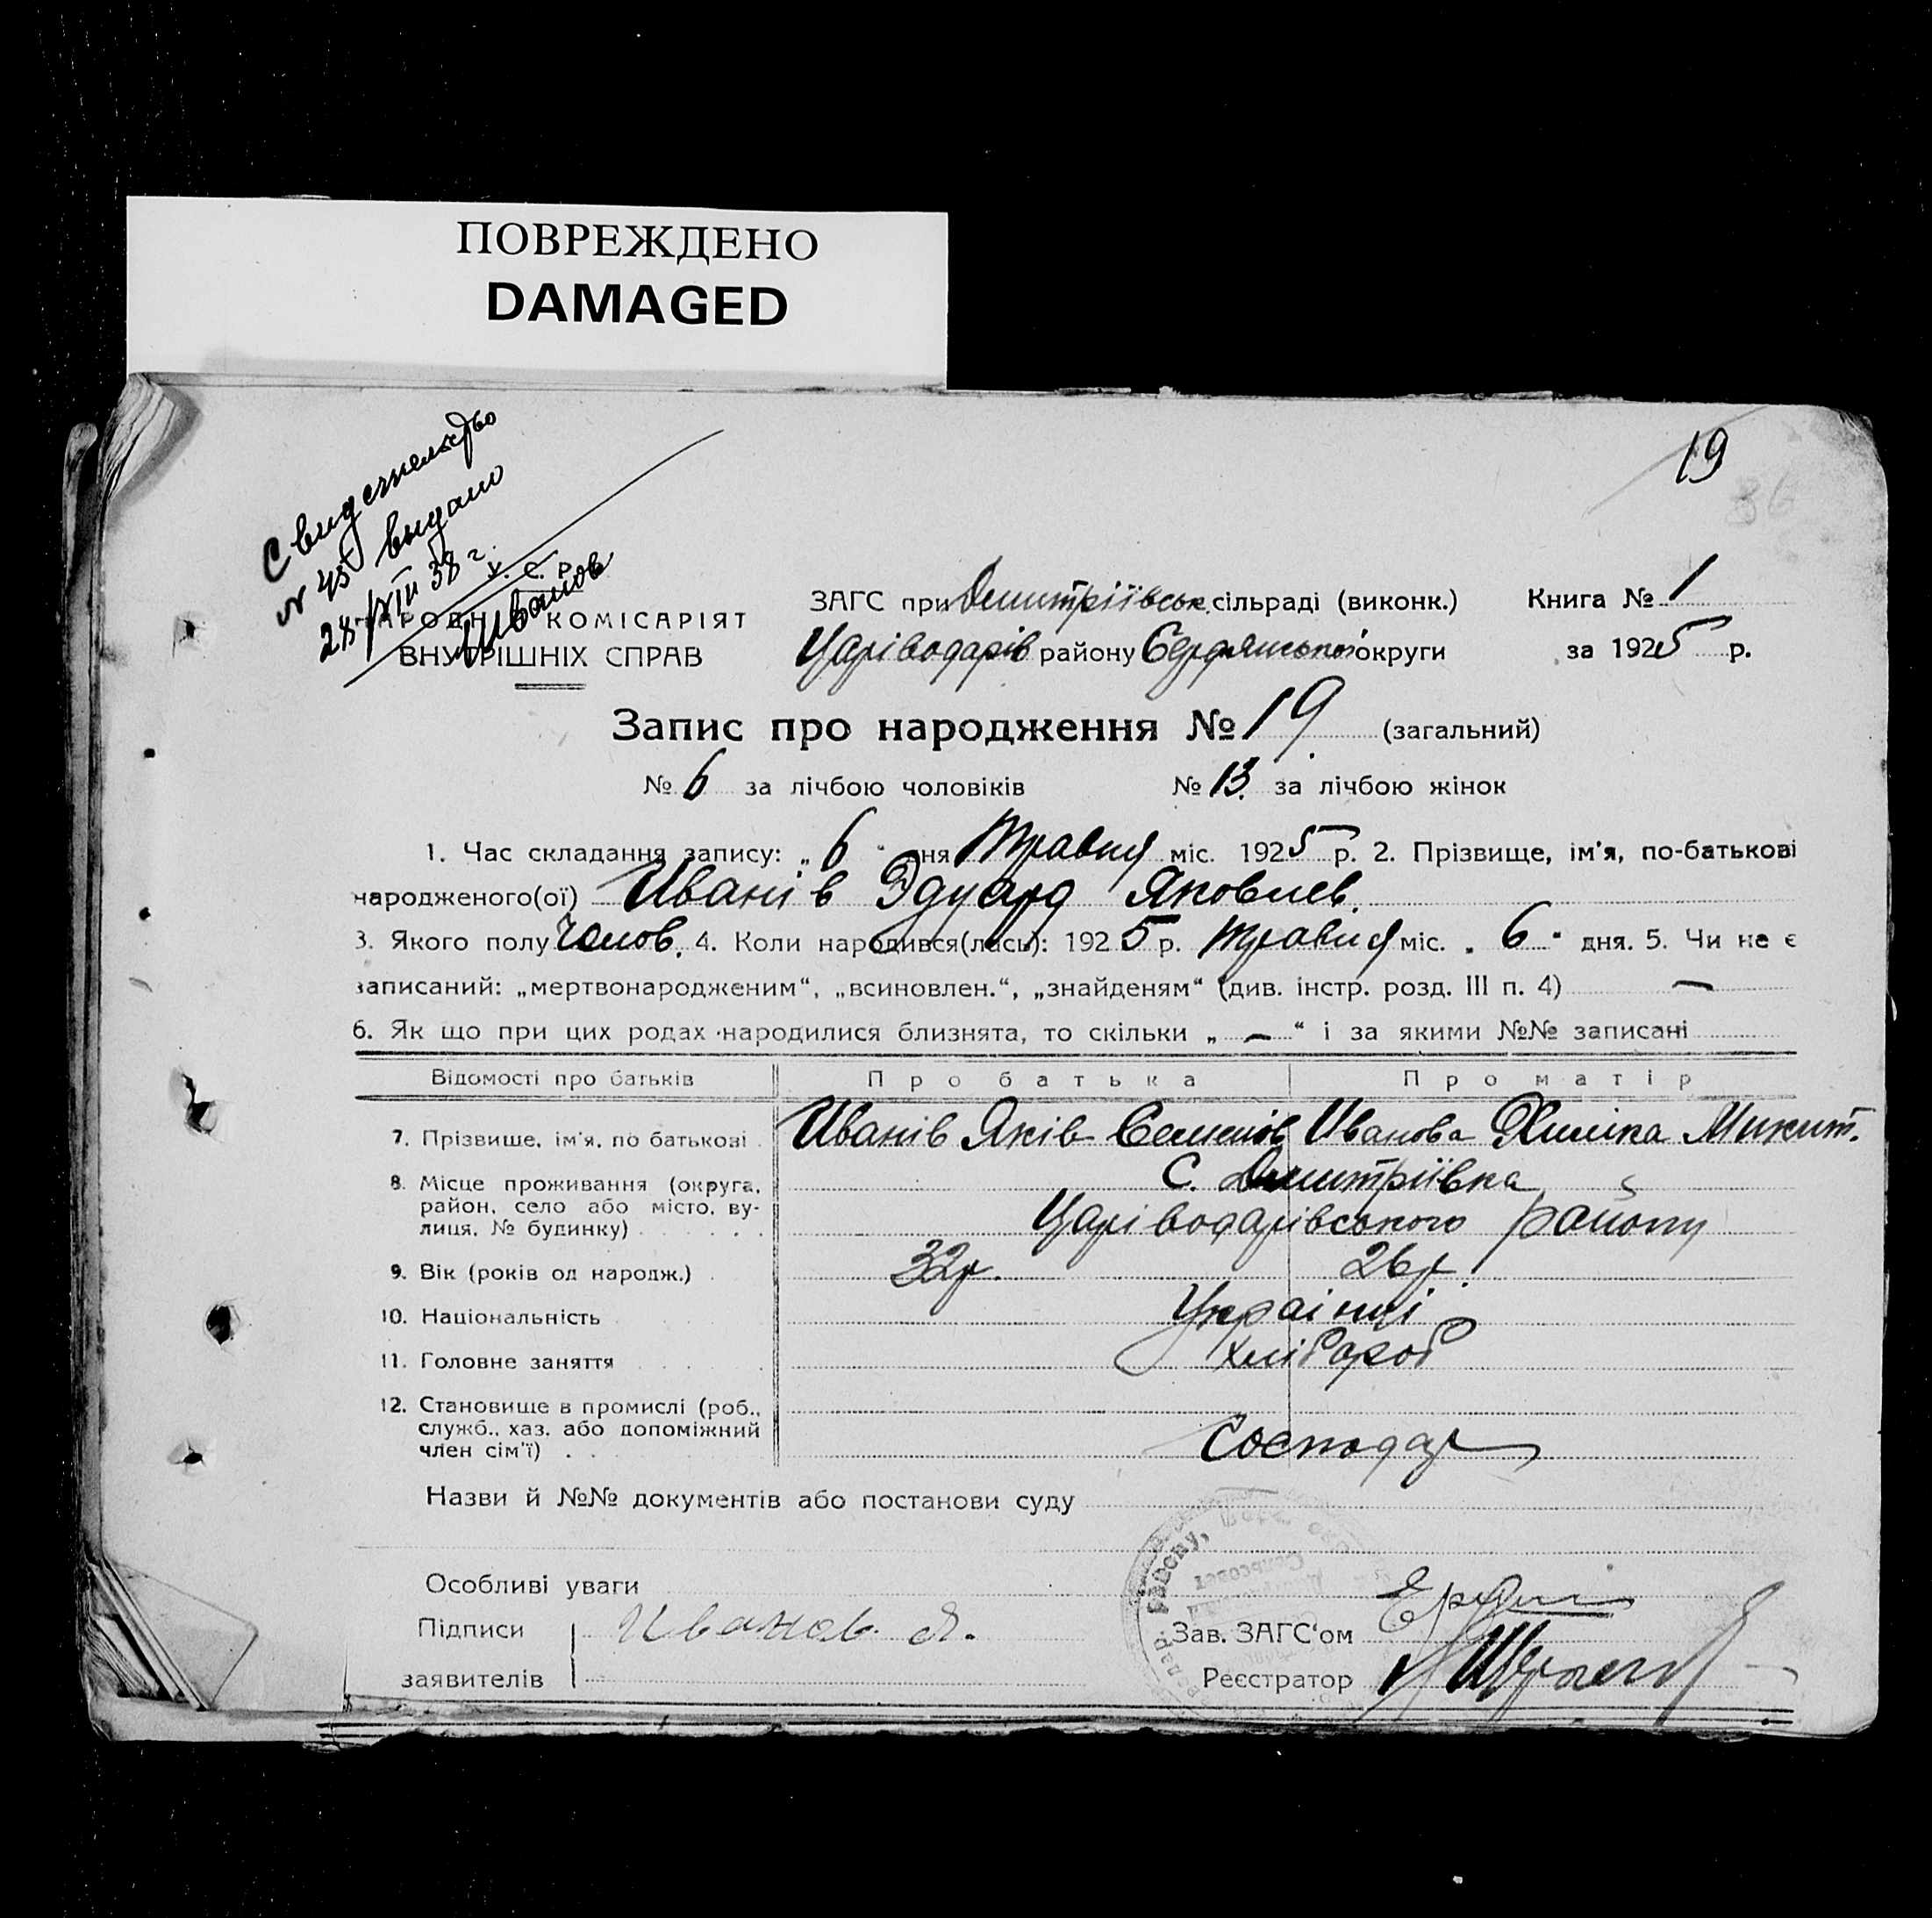 ПОВРЕЖДЕНО
DAMAGED
19
36
Свидетельство
№ 45 выдано
28/XII 38 г.
Иванов
У. С. Р.
НАРОДНІЙ КОМІСАРІЯТ
ВНУТРІШНІХ СПРАВ
ЗАГС при Дмитріївськ. сільраді (виконк.)
Царіводарів району Бердянської округи
Книга № 1
за 1925 р.
Запис про народження № 19 (загальний)
№ 6 за лічбою чоловіків № 13. за лічбою жінок
1. Час складання запису: „ 6 “ дня Травня міс. 1925 р. 2. Прізвище, ім'я, по-батькові
народженого(ої) Иванів Эдуард Яковлев.
3. Якого полу Чолов. 4. Коли народився(лась): 1925 р. Травня міс. „ 6 “ дня. 5. Чи не є
записаний: „мертвонародженим“, „всиновлен.“, „знайденям“ (див. інстр. розд. III п. 4) —
6. Як що при цих родах народилися близнята, то скільки „ — “ і за якими №№ записані
Відомості про батьків Про батька Про матір
7. Прізвише, ім'я, по батькові Иванів Яків Семенов Иванова Микит.
8. Місце проживання (округа, район, село або місто, ву-
лиця, № будинку) С. Дмитріївка
Царіводарівського району
9. Вік (років од народж.) 32р. 26р.
10. Національність Українці
11. Головне заняття хлібороб
12. Становище в промислі (роб.,
служб., хаз. або допоміжний
член сім'ї) Господар
Назви й №№ документів або постанови суду
Особливі уваги
Підписи
заявителів
Иванов Я.
Зав. ЗАГС'ом
Реєстратор